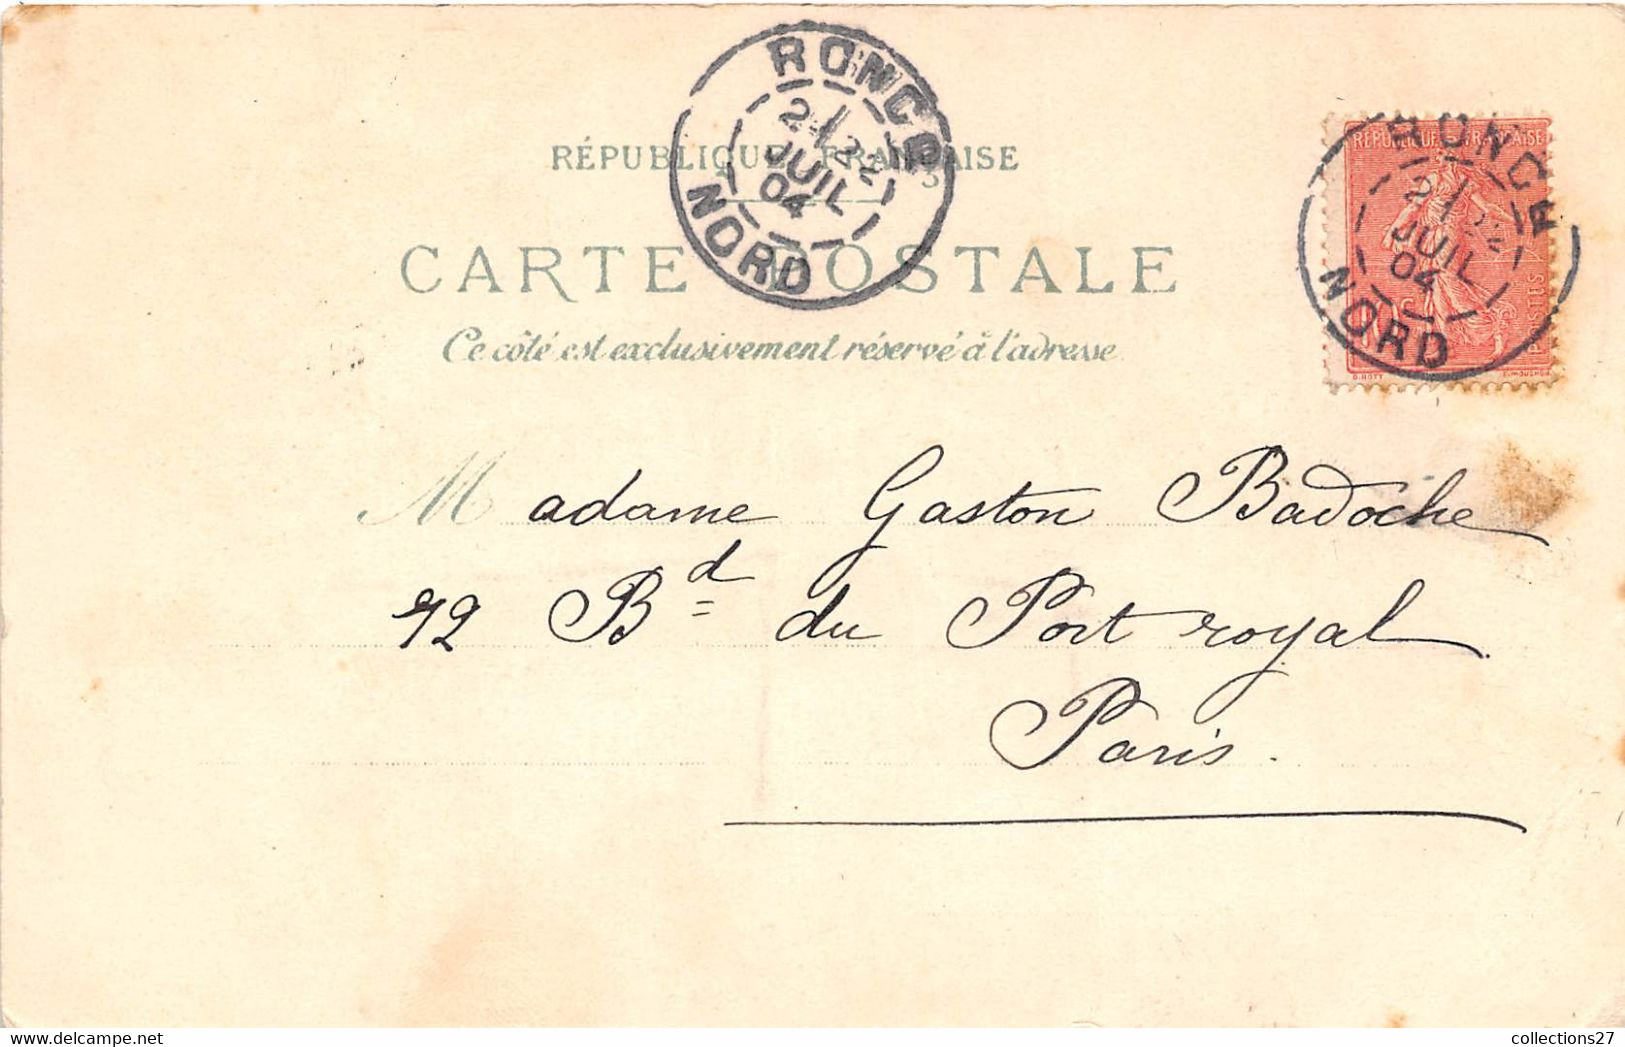 RONCQ
2E
22
JUIL
04
NORD
RÉPUBLIQUE FRANÇAISE
CARTE POSTALE
Ce côté est exclusivement réservé à l'adresse
REPUBLIQUE FRANÇAISE
POSTES
RONCQ
JUIL
04
NORD
O. ROTY
E. MOUCHON
Madame Gaston Badoche
92 Bd du Port royal
Paris.
collections27